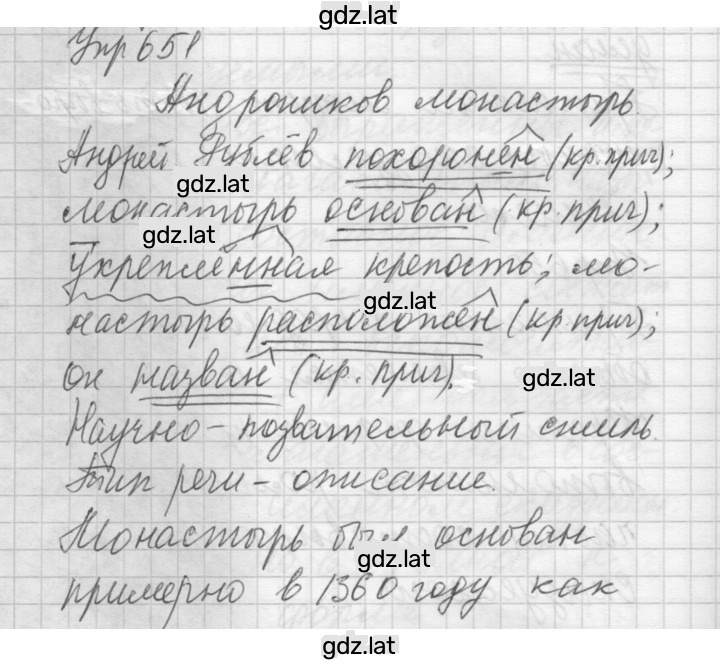 gdz.lat
Упр 651
Андроников монастырь.
Андрей Рублёв похоронен (кр. прич);
gdz.lat
монастырь основан (кр. прич);
gdz.lat
Укреплённая крепость; мо-
gdz.lat
настырь расположен (кр. прич);
он назван (кр. прич).
gdz.lat
Научно-позвательный стиль.
Тип речи - описание.
Монастырь был основан
gdz.lat
примерно в 1360 году как
gdz.lat